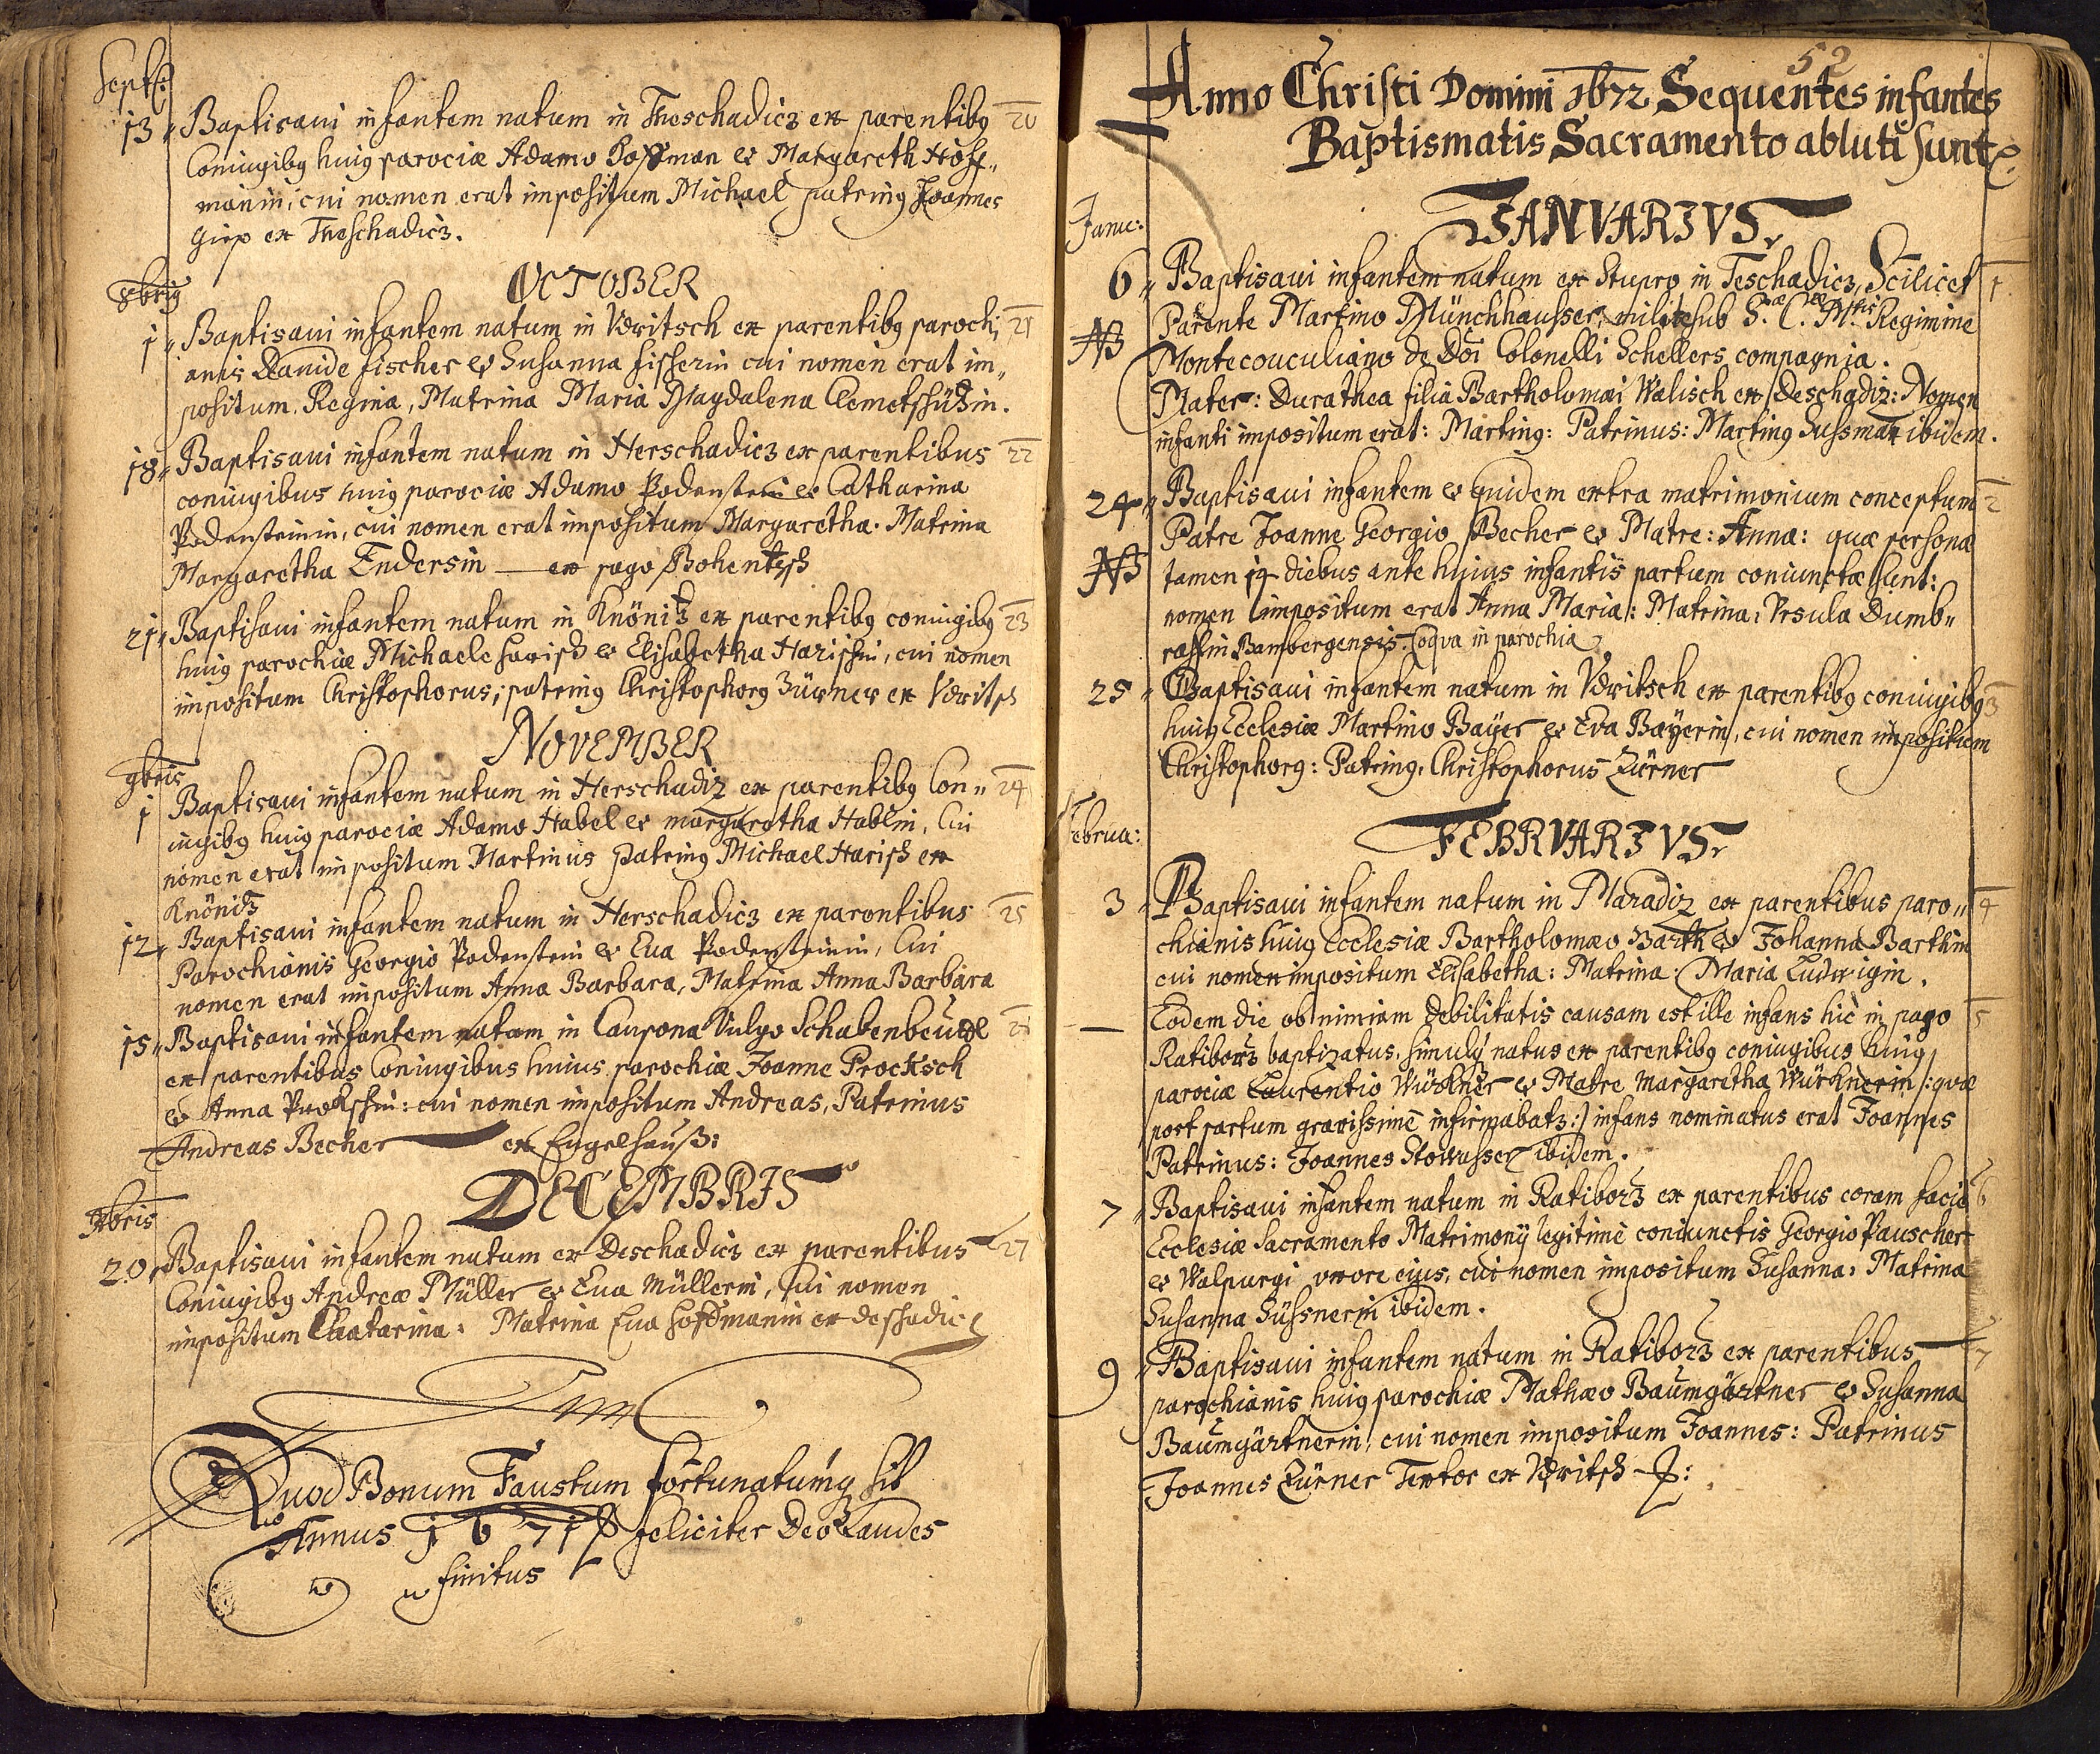 Septb:
13 „ Baptisaui infantem natum in Theschadicz ex parentibꝯ 20
Coniugibꝯ huiꝯ parociæ Adamo Hoffman & Margareth Hoff„
manin, cui nomen erat impositum Michael patrinꝯ Joannes
ex Theschadicz.
OCTOBER
8bris
1 „ Baptisaui infantem natum in Vdritsch ex parentibꝯ parochi 21
anis Dauide fischer & Susanna fischerin cui nomen erat im„
positum Regina, Matrina Maria Magdalena Clemetschüzin.
18 „ Baptisaui infantem natum in Herschadicz ex parentibus 22
coniugibus huiꝯ parociæ Adamo Podenstein & Catharina
Podensteinin, cui nomen erat impositum Margaretha. Matrina
Margaretha Endersin — ex pago Bohentsch
21 „ Baptisaui infantem natum in Knönitz ex parentibꝯ coniugibꝯ 23
huiꝯ parochiæ Michaele Harisch & Elisabetha Harischin, cui nomen
impositum Christophorus, patrinꝯ Christophorꝯ Zürner ex Vdritsch
NOVEMBER
9bris
1 Baptisaui infantem natum in Herschadiz ex parentibꝯ Con„ 24
iugibꝯ huiꝯ parociæ Adamo Habel & margaretha Hablin, Cui
nomen erat impositum Martinus patrinꝯ Michael Harisch ex
Knönitz
12 „ Baptisaui infantem natum in Herschadicz ex parentibus 25
Parochianis Georgio Podenstein & Eua Podensteinin, Cui
nomen erat impositum Anna Barbara, Matrina Anna Barbara
15 „ Baptisaui infantem natum in Caupona Vulgo Schabenbeutel 26
ex parentibus Coniugibus huius parochiæ Joanne Procksch
& Anna Prokschin: cui nomen impositum Andreas, Patrinus
Andreas Becher — ex Engelhauß:
DECEMBRIS
Xbris
20 „ Baptisaui infantem natum ex Deschadicz ex parentibus 27
Coniugibꝯ Andreæ Müller & Eua Müllerin, Cui nomen
impositum Chatarina: Matrina Eua Hoffmanin ex deschadic
Quod Bonum Faustum fortunatumꝙ sit
Annus 1671 feliciter Deo Laudes
finitus
52
Anno Christi Domini 1672 Sequentes infantes
Baptismatis Sacramento abluti sunt
JANVARIVS
Janu:
6 „ Baptisaui infantem natum ex Stupro in Teschadicz, Scilicet 1
NB Parente Martino Münchhausser, milite sub S. C. Mtis Regimine
Montecouculiano de Doi Colonelli Schellers compagnia.
Mater: Durathea filia Bartholomæi Walisch ex Deschadiz: Nomen
infanti impositum erat: Martinꝯ: Patrinus: Martinꝯ Sussman ibidem.
24 „ Baptisaui infantem & quidem extra matrimonium conceptum 2
Patre Joanne Georgio Becher & Matre: Anna: quæ personæ
NB tamen 14 diebus ante huius infantis partum coniunctæ sunt:
nomen impositum erat Anna Maria: Matrina: Vrsula Dumb„
rasslin Bambergensis. Coqva in parochia
25 „ Baptisaui infantem natum in Vdritsch ex parentibꝯ coniugibꝯ 3
huiꝯ Ecclesiæ Martino Bayer & Eva Bayerin, cui nomen impositum
Christophorꝯ: Patrinꝯ. Christophorus Zürner
Februa:
FEBRVARIVS
3 „ Baptisaui infantem natum in Maradiz ex parentibus paro„ 4
chianis huiꝯ Ecclesiæ Bartholomæo Barth & Johanna Barthin
cui nomen impositum Elisabetha: Matrina: Maria Ludwigin.
— Eodem die ob nimiam debilitatis causam est ille infans hic in pago 5
Ratiborz baptizatus, simulꝙ natus ex parentibꝯ coniugibus huiꝯ
parociæ Laurentio Würkner & Matre Margaretha Würknerin /: quæ
post partum gravissime infirmabatz :/ infans nominatus erat Joannes
Patrinus: Joannes Stowasser ibidem.
7 „ Baptisaui infantem natum in Ratiborz ex parentibus coram facie 6
Ecclesiæ Sacramento Matrimonij legitimè coniunctis Georgio Pauscher
& Walpurgi vxore ejus, cui nomen impositum Susanna: Matrina
Susanna Süssnerin ibidem.
9 „ Baptisaui infantem natum in Ratiborz ex parentibus 7
parochianis huiꝯ parochiæ Mathæo Baumgärtner & Susanna
Baumgärtnerin, cui nomen impositum Joannes: Patrinus
Joannes Zürner Textor ex Vdritsch